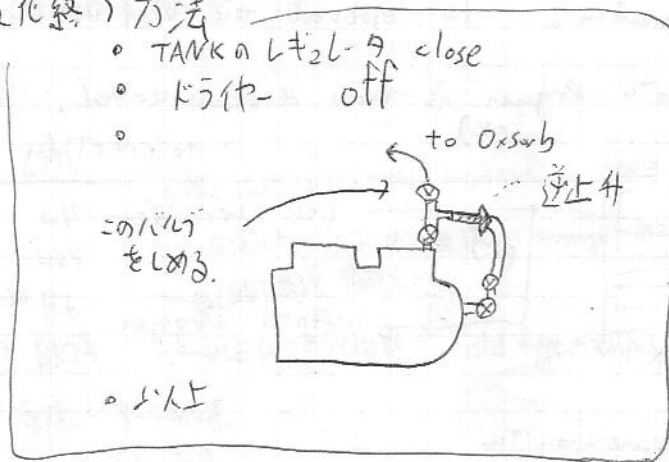 化終了方法
• TANKのレギュレータ close
• ドライヤー off
•
to Oxsorb
逆止弁
このバルブ
をしめる.
• 以上